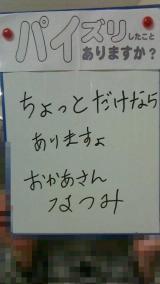 パイズリしたこと
ありますか？
ちょっとだけなら
ありますょ
おかあさん
なつみ